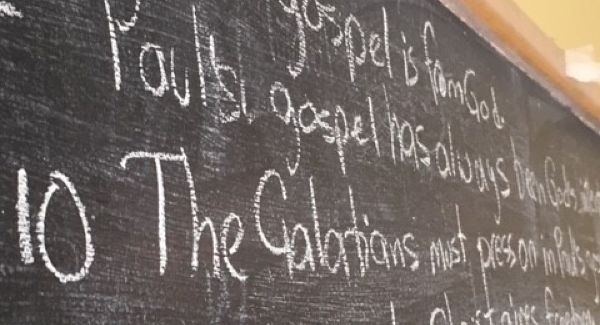 gospel is from God.
Paul's gospel has always been God's
10 The Galatians must press on in Paul's
Christ gives freedom